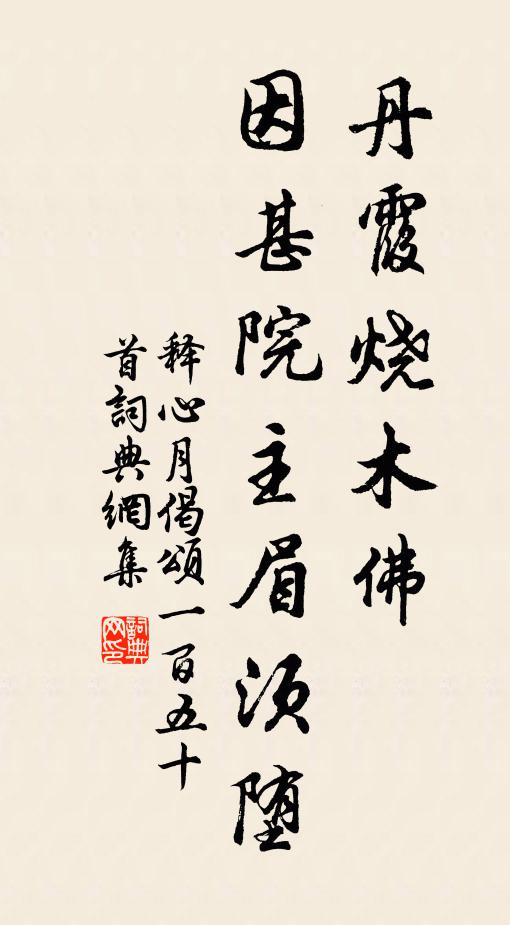 丹霞烧木佛
因甚院主眉须堕
释心月偈颂一百五十
首詞典網集
詞典网印